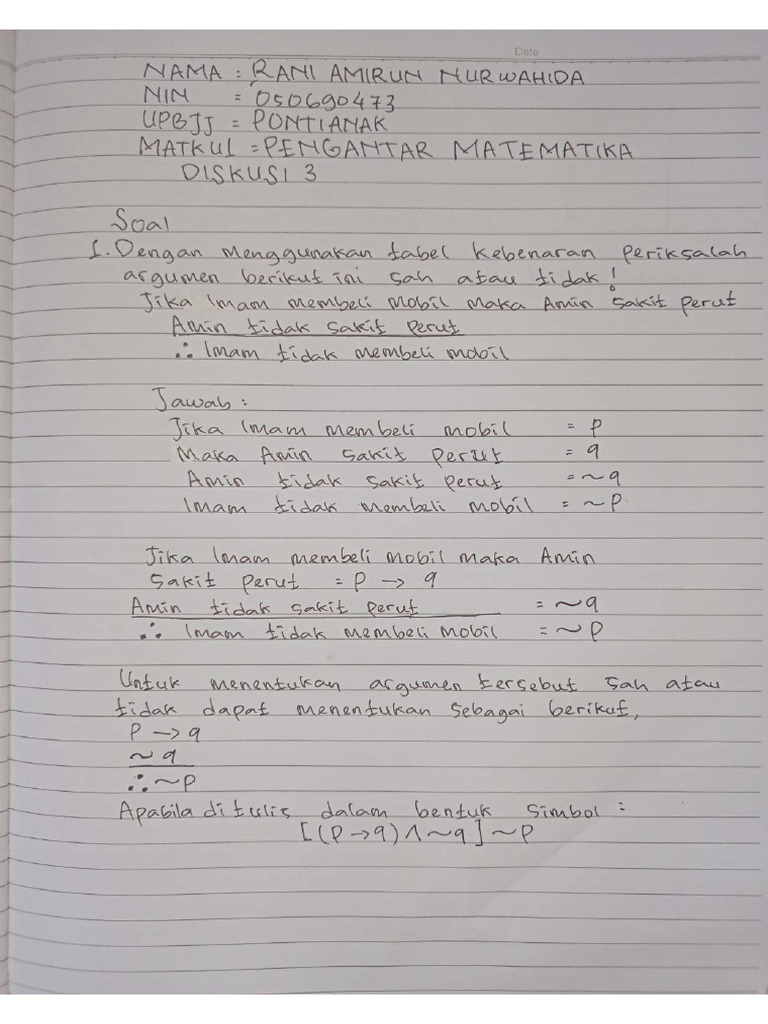 Date
NAMA : RANI AMIRUN NURWAHIDA
NIN = 050690473
UPBJJ = PONTIANAK
MATKUL = PENGANTAR MATEMATIKA
DISKUSI 3
Soal
1. Dengan menggunakan tabel kebenaran periksalah
argumen berikut ini sah atau tidak!
Jika Imam membeli mobil maka Amin sakit perut
Amin tidak sakit perut
∴ Imam tidak membeli mobil
Jawab :
Jika Imam membeli mobil = p
Maka Amin sakit perut = q
Amin tidak sakit perut = ~q
Imam tidak membeli mobil = ~p
Jika Imam membeli mobil maka Amin
sakit perut = p → q
Amin tidak sakit perut = ~q
∴ Imam tidak membeli mobil = ~p
Untuk menentukan argumen tersebut sah atau
tidak dapat menentukan sebagai berikut,
p → q
~q
∴ ~p
Apabila ditulis dalam bentuk simbol :
[(p→q) ∧ ~q] ~p